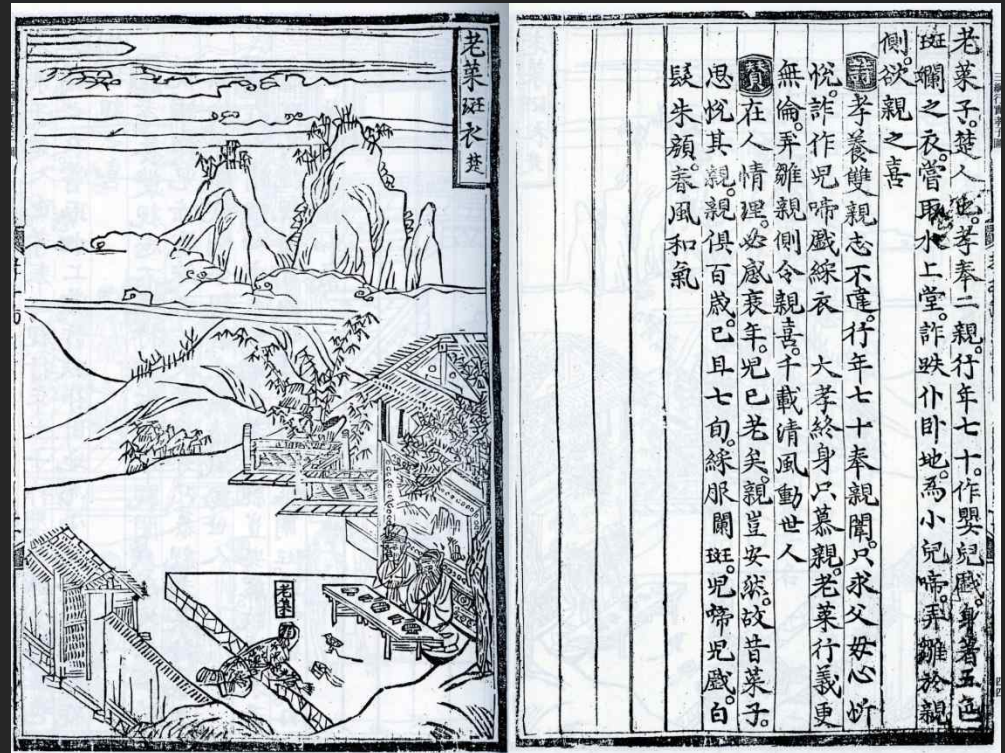 老萊子。楚人也。孝奉二親。行年七十。作嬰兒戲。身著五色
斑斕之衣。嘗取水上堂。詐跌仆卧地。爲小兒啼。弄雛於親
側。欲親之喜
詩孝養雙親志不違。行年七十奉親闈。只求父母心忻
悅。詐作兒啼戲綵衣 大孝終身只慕親。老萊行義更
無倫。弄雛親側令親喜。千載清風動世人
贊在人情理。必感衰年。兒已老矣。親豈安然。故昔萊子。
思悅其親。親俱百歲。已且七旬。綵服闌斑。兒啼兒戲。白
髮朱顏。春風和氣
老萊斑衣 楚
老萊